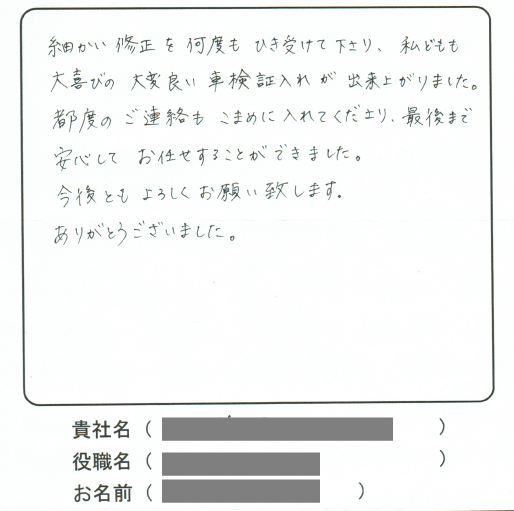 細かい修正を何度もひき受けて下さり、私どもも
大喜びの大変良い車検証入れが出来上がりました。
都度のご連絡もこまめに入れてくださり、最後まで
安心してお任せすることができました。
今後ともよろしくお願い致します。
ありがとうございました。
貴社名（　）
役職名（　）
お名前（　）